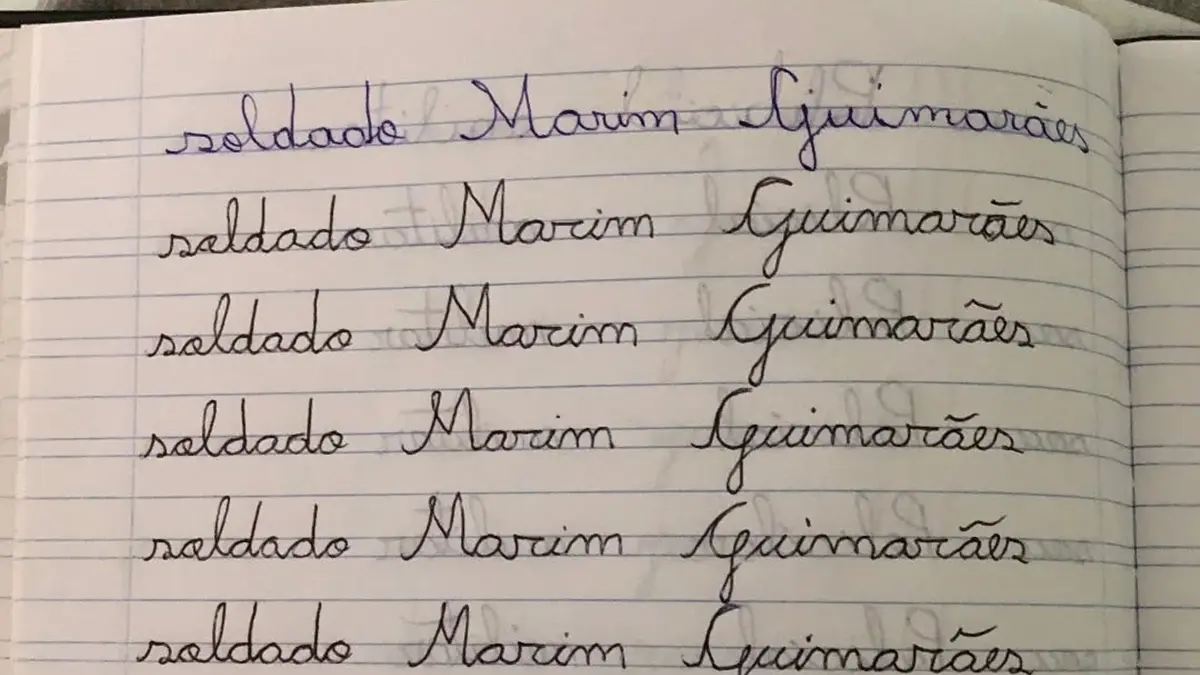 soldado Marim Guimarães
soldado Marim Guimarães
soldado Marim Guimarães
soldado Marim Guimarães
soldado Marim Guimarães
soldado Marim Guimarães